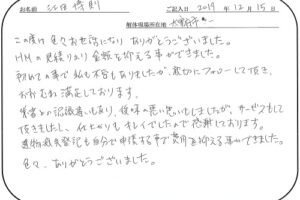 お名前 江田 将則 ご記入日 2019 年 12 月 15 日
解体現場所在地 大野城市
この度は色々お世話になり ありがとうございました。
HMの見積りより金額を抑える事ができました。
初めての事で私も不安もありましたが、親切にフォローして頂き、
おおむね満足しております。
業者との認識違いもあり、後味の悪い思いもしましたが、サービスもして
頂きましたし、仕上がりもキレイでしたので感謝しております。
建物滅失登記も自分で申請する事で費用を抑える事ができました。
色々、ありがとうございました。